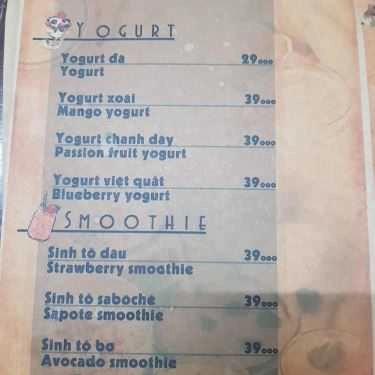 YOGURT
Yogurt đa 29000
Yogurt
Yogurt xoài 39000
Mango yogurt
Yogurt chanh day 39000
Passion fruit yogurt
Yogurt việt quât 39000
Blueberry yogurt
SMOOTHIE
Sinh tô dâu 39000
Strawberry smoothie
Sinh tô sabochê 39000
Sapote smoothie
Sinh tô bơ 39000
Avocado smoothie